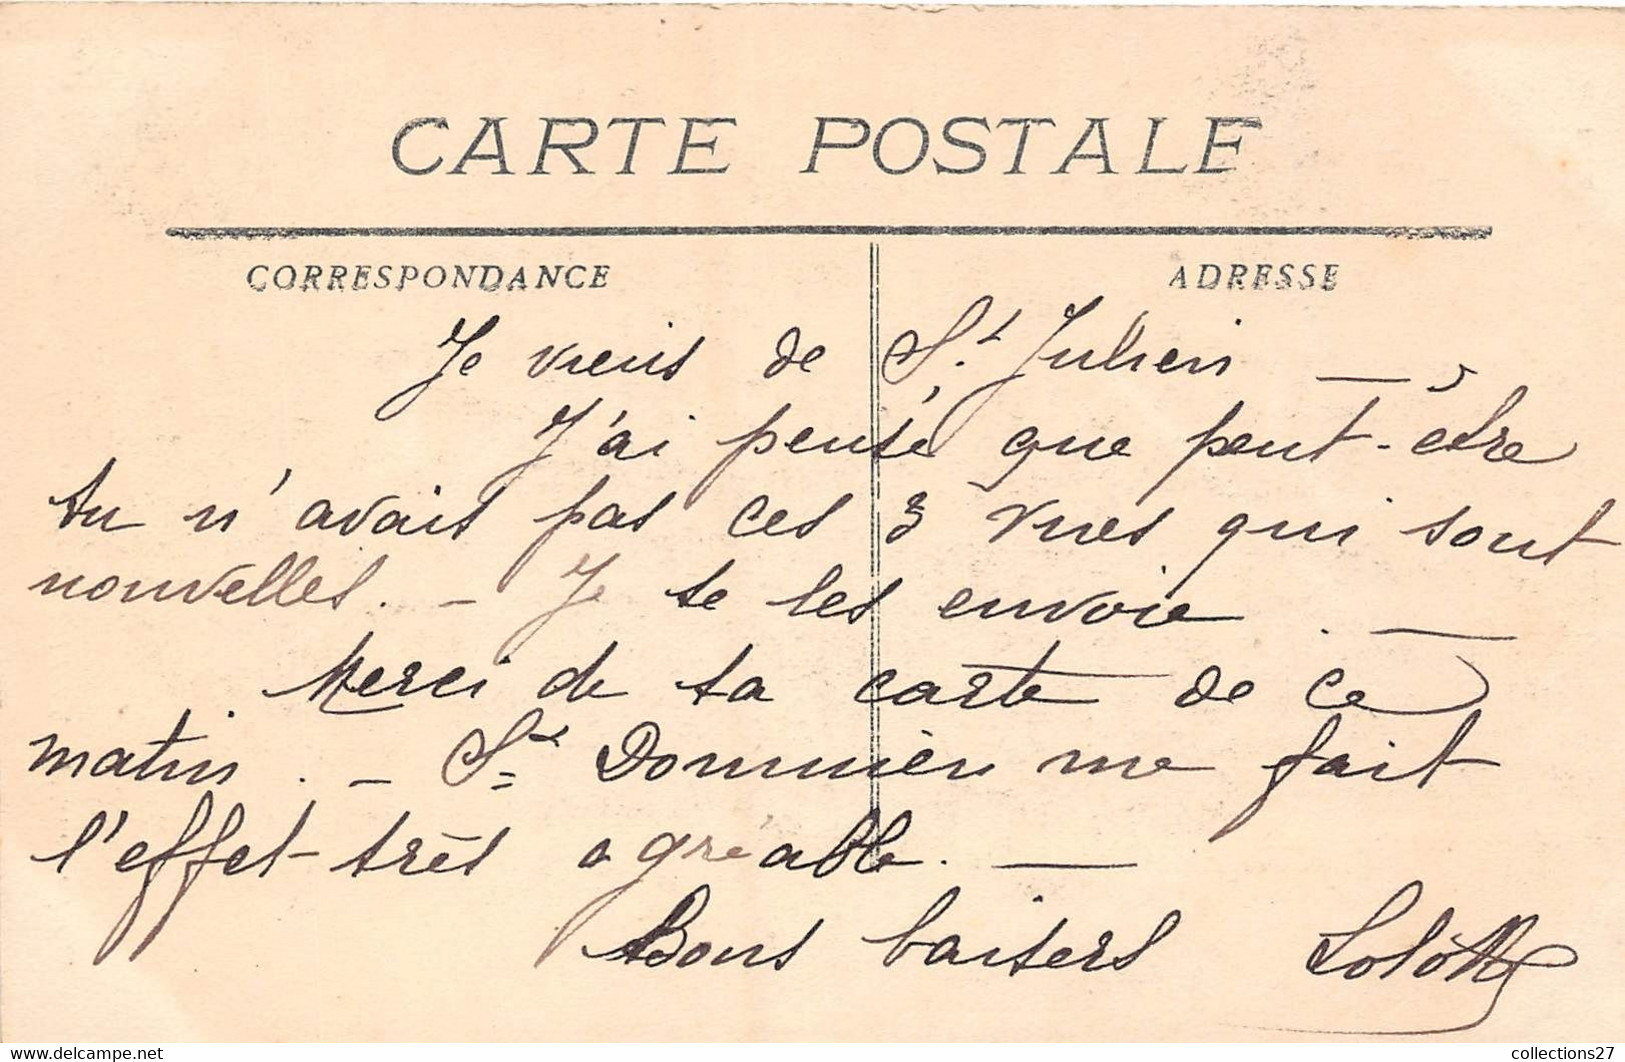 CARTE POSTALE
CORRESPONDANCE
ADRESSE
Je viens de St Julien —
J'ai pensé que peut-être
tu n'avais pas ces 3 vues qui sont
nouvelles. - Je te les envoie. —
Merci de ta carte de ce
matin. - St Dominien me fait
l'effet très agréable. —
Bons baisers Lolotte
collections27